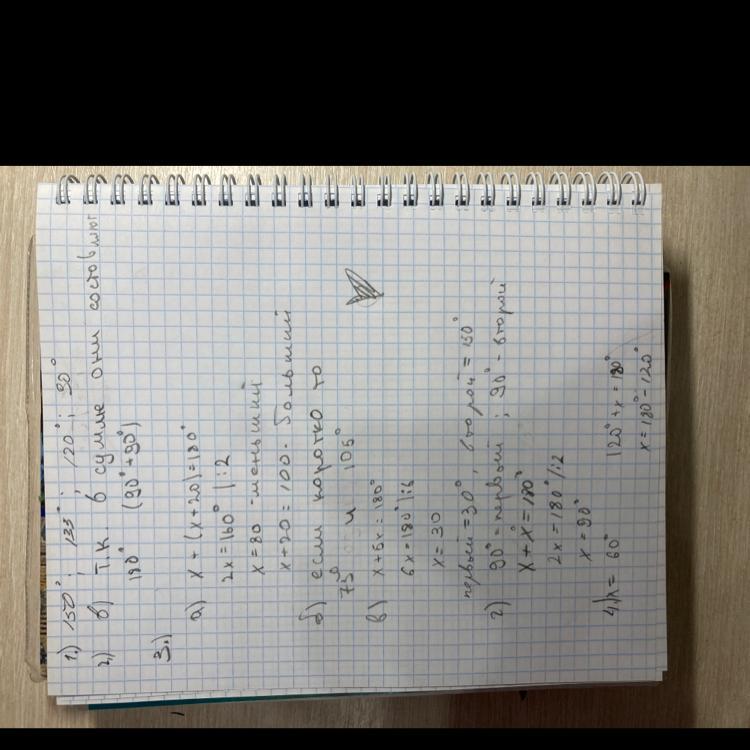 1.) 150°; 135°; 120°; 90°
2.) в) Т.К. в сумме они составляют
180° (90°+90°)
3.)
а) x + (x+20)=180°
2x=160° |:2
x=80 -меньший
x+20=100- больший
б) если коротко то
75° и 105°
в) x+5x=180°
6x=180° |:6
x=30
первый=30°, второй=150°
г) 90°=первый; 90°- второй
x+x=180°
2x=180° |:2
x=90°
4.) x= 60° 120°+x=180°
x=180°-120°